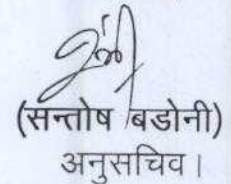 (सन्तोष बडोनी)
अनुसचिव।